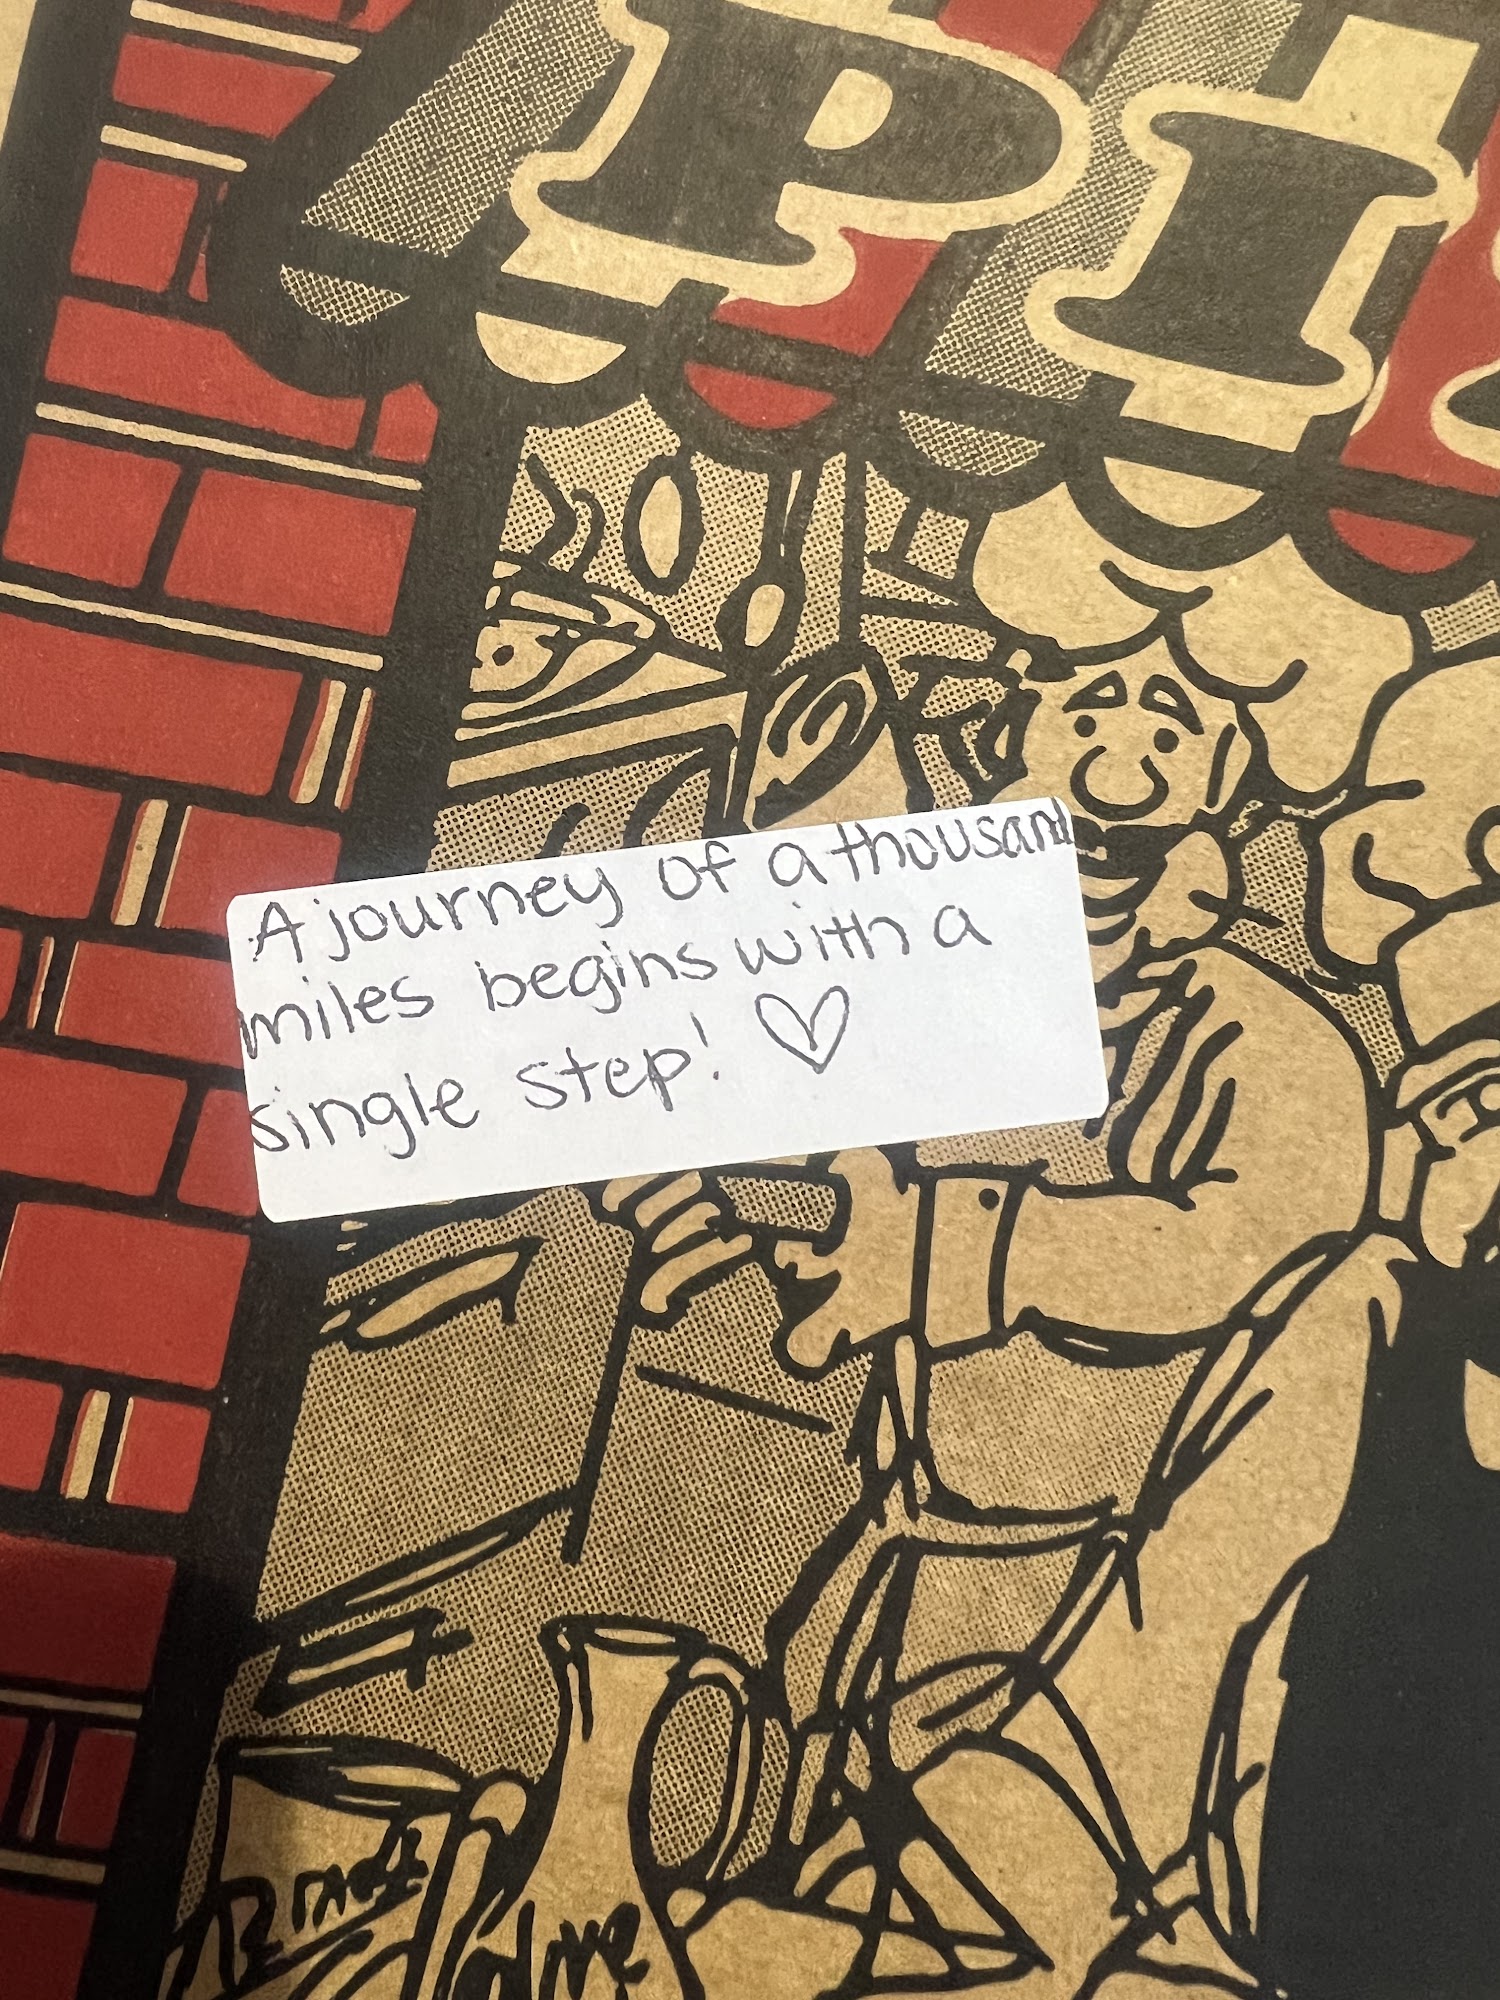 PI
A journey of a thousand
miles begins with a
single step! ♡